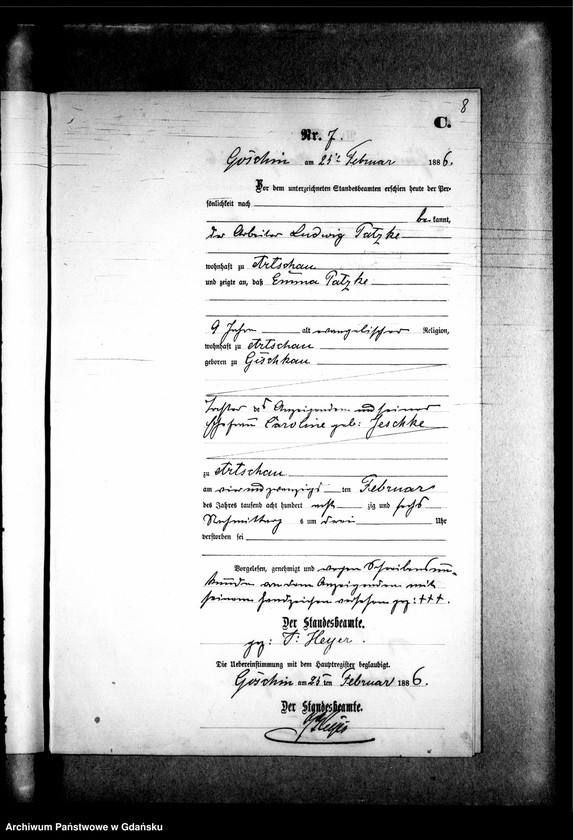 8
C.
Nr. 7.
Göschin am 25ten Februar 1886.
Vor dem unterzeichneten Standesbeamten erschien heute der Per-
sönlichkeit nach
be kannt,
der Arbeiter Ludwig Patzke
wohnhaft zu Artschau
und zeigte an, daß Emma Patzke
9 Jahre alt evangelischer Religion,
wohnhaft zu Artschau
geboren zu Gischkau
Tochter des Anzeigenden und seiner
Ehefrau Caroline geb: Jeschke
zu Artschau
am vier und zwanzigs ten Februar
des Jahres tausend acht hundert acht zig und sechs
Nachmittags um drei Uhr
verstorben sei
Vorgelesen, genehmigt und wegen Schreibensun-
kunde von dem Anzeigenden mit
seinem Handzeichen versehen gez: +++.
Der Standesbeamte.
gez: Heyer.
Die Uebereinstimmung mit dem Hauptregister beglaubigt.
Göschin am 25ten Februar 1886.
Der Standesbeamte.
Heyer
Archiwum Państwowe w Gdańsku